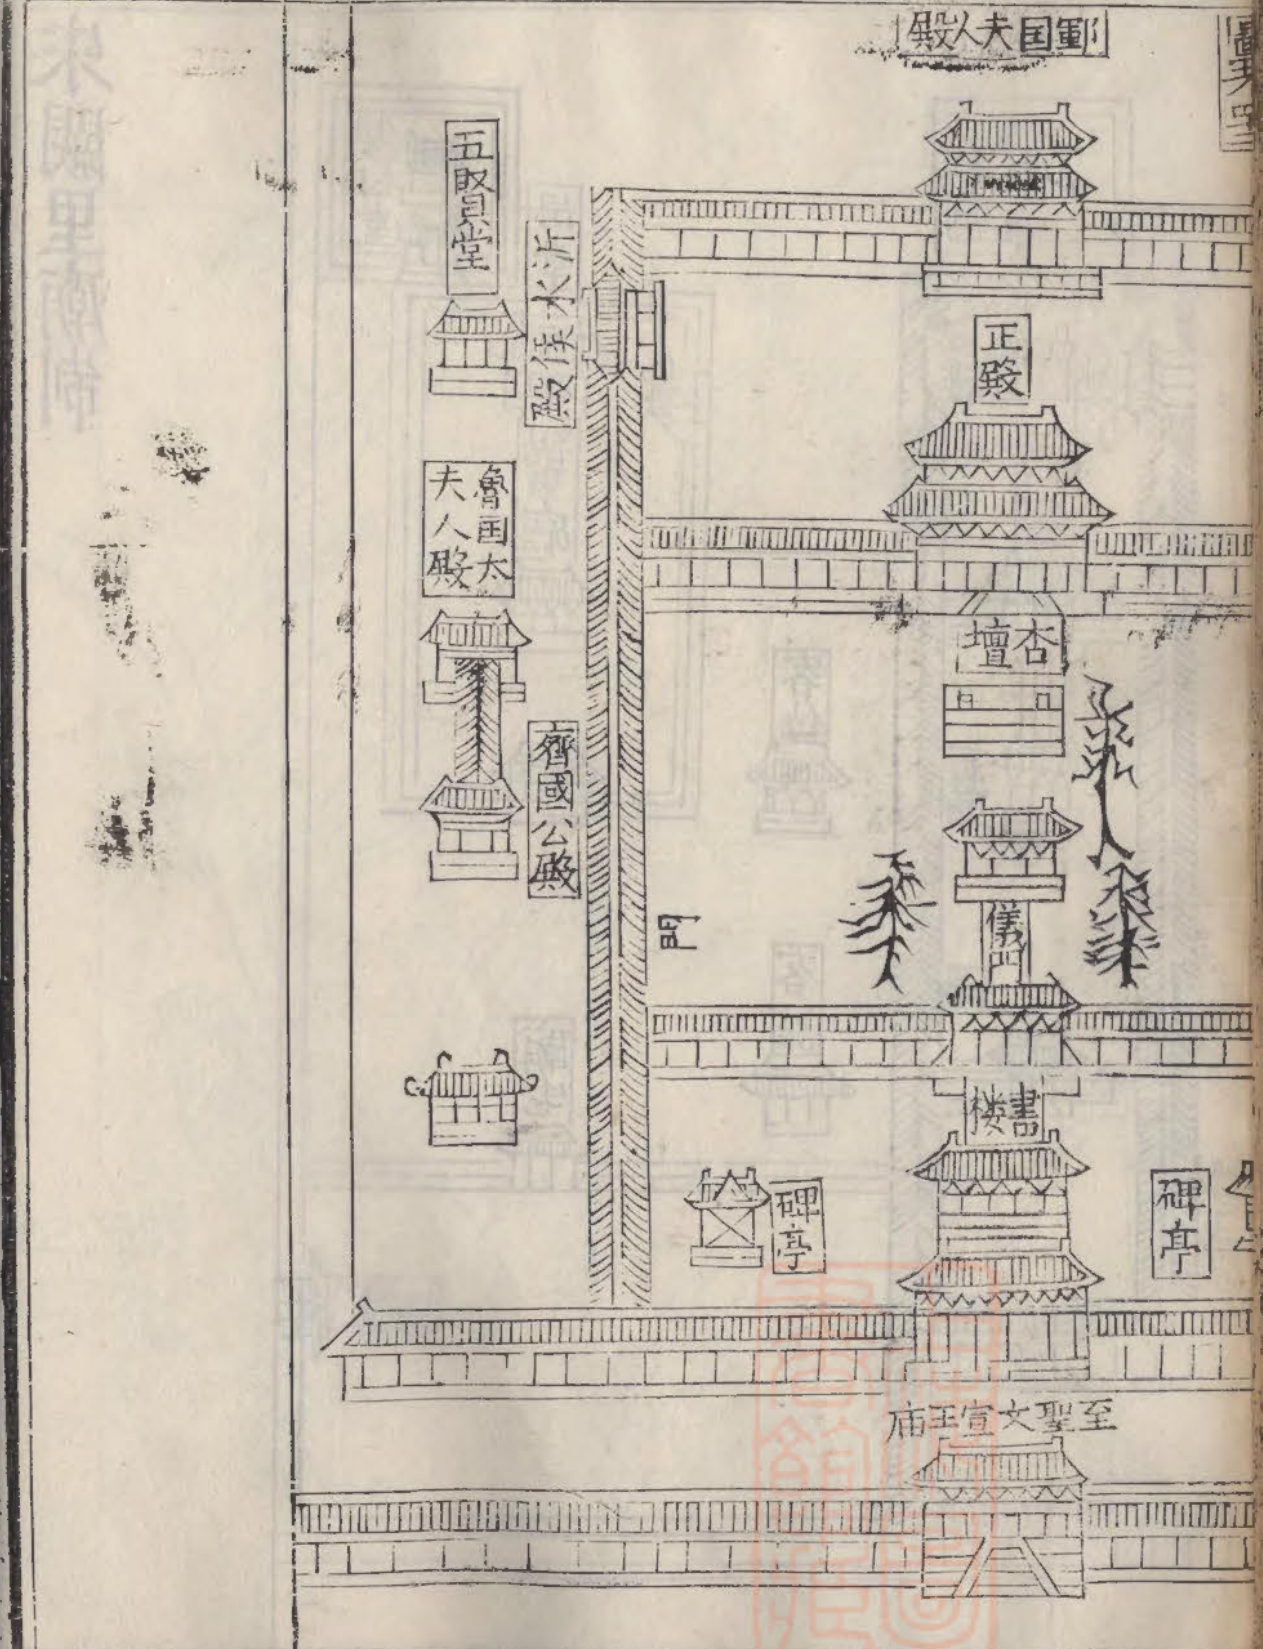 鄆国夫人殿
五賢堂
沂水侯殿
正殿
魯国太
夫人殿
杏壇
齊國公殿
門
儀門
書楼
碑亭
碑亭
至聖文宣王庙
宋闕里廟制